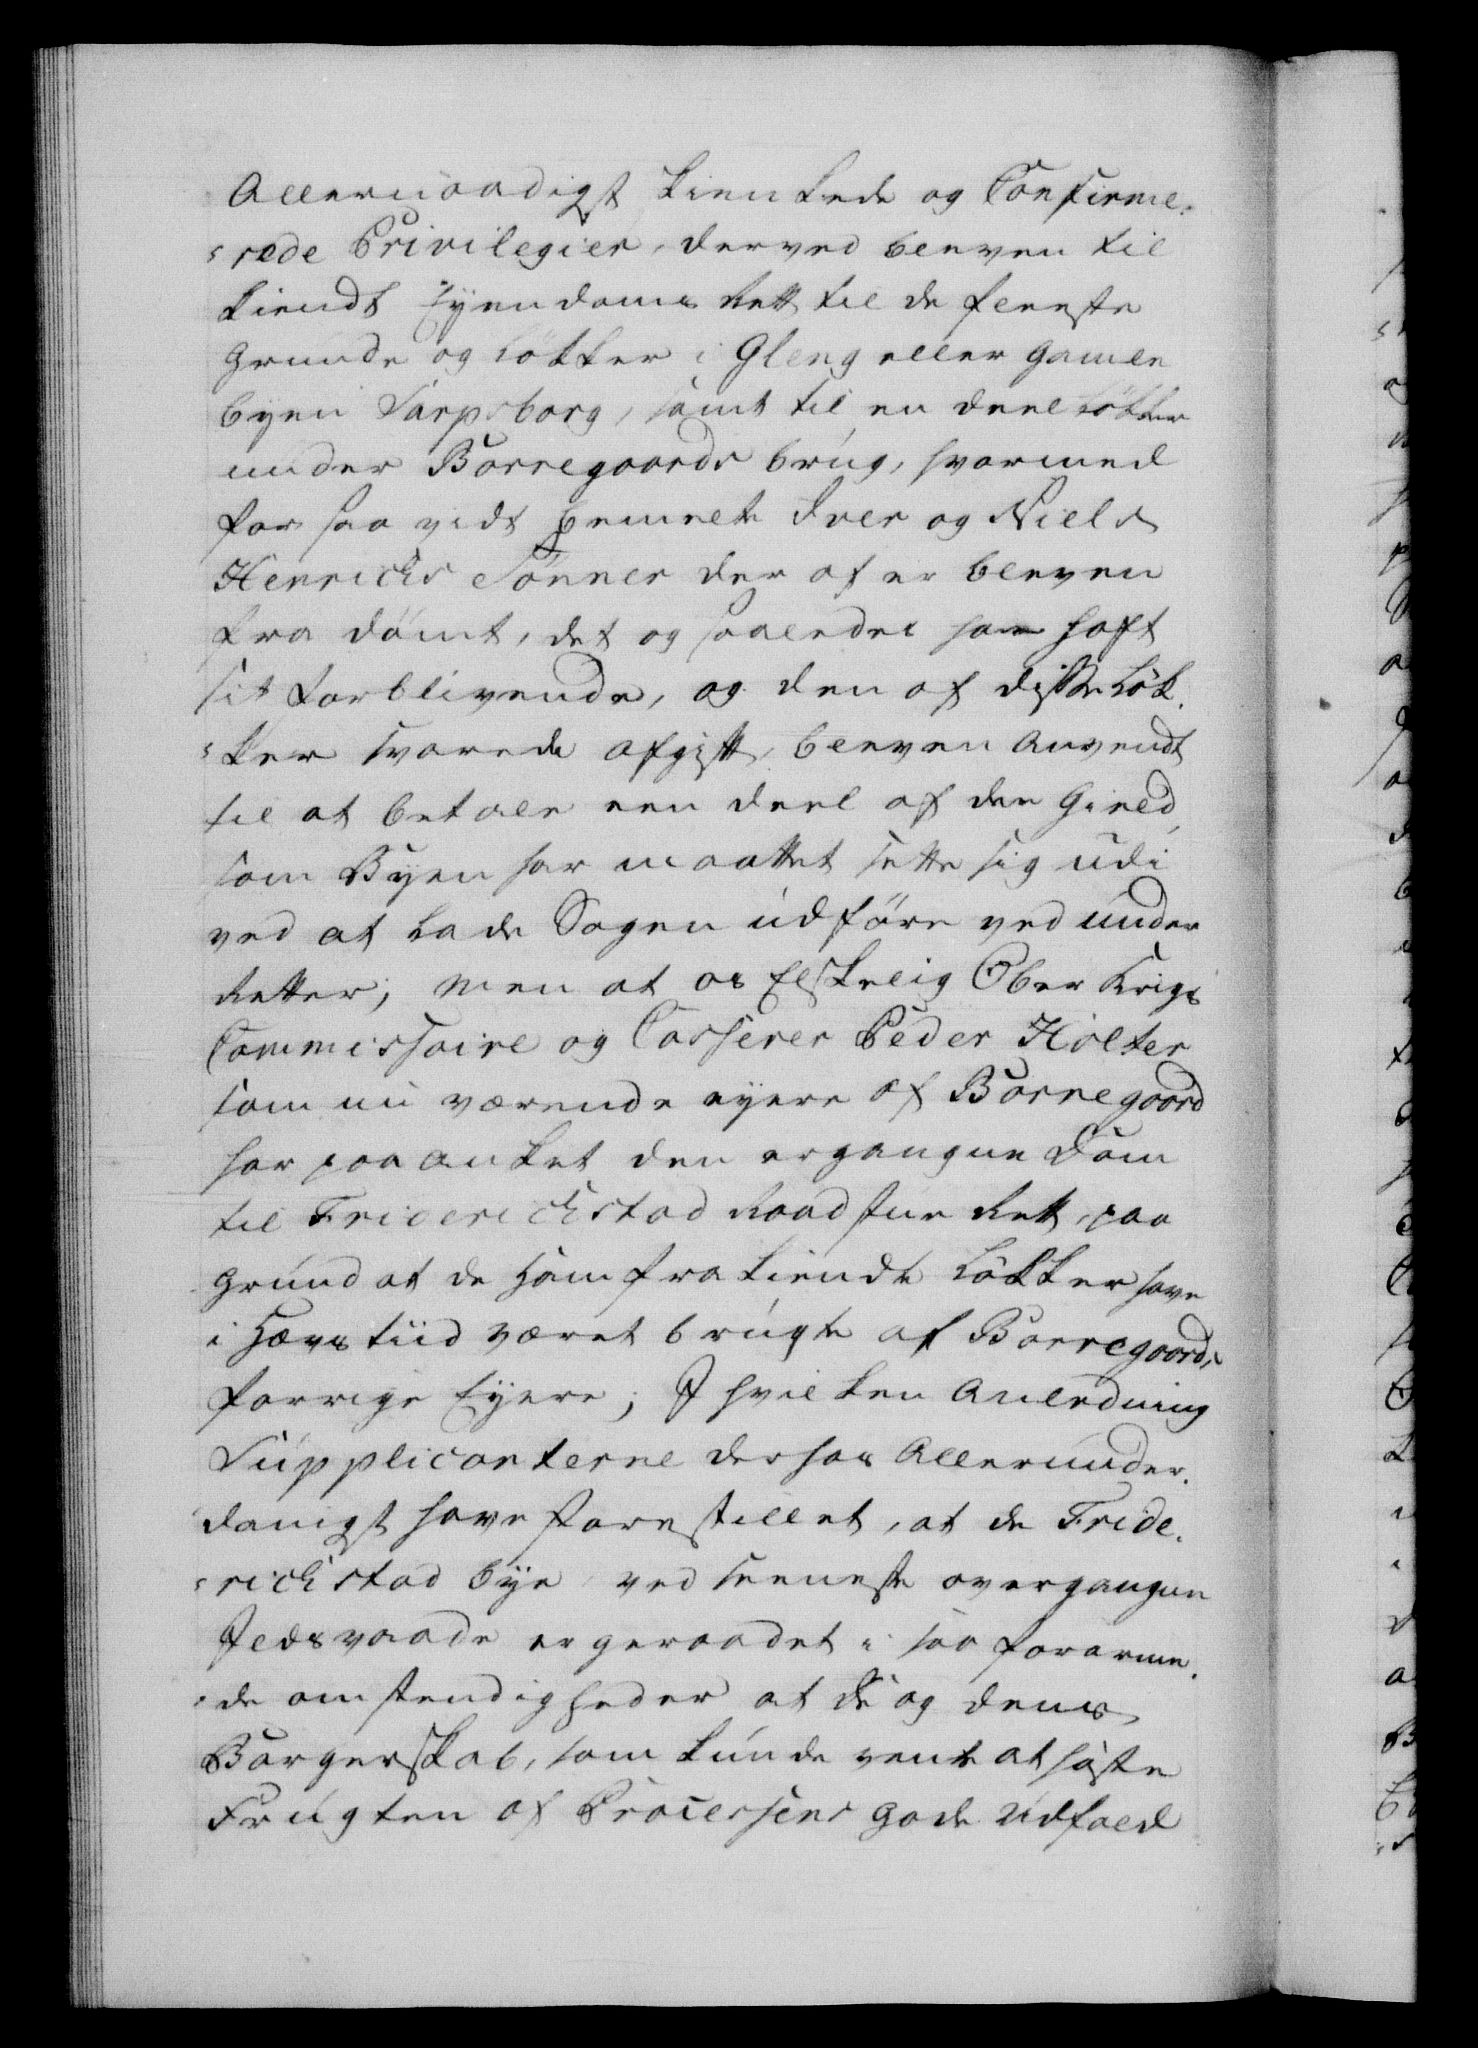 Allernaadigst skienkede og Confirme-
-rede Privilegier, derved bleven til
kiendt Eyendoms Rett til de fleeste
Grunde og Løkker i Gleng eller Gamle
byen Sarpsborg, samt til en deel Løkker
under Borregaards brug, hvormed
for saa vidt bemelte Iver og Niels
Henrichs Sønner der af er bleven
fra dømt, det og saaledes har haft
sit forblivende, og den af disse Løk-
-ker svarede afgift, bleven anvendt
til at betale een deel af den Gield,
som Byen har maattet sette sig udi
ved at lade Sagen udføre ved under
Retter; men at os Elskelig Ober Krigs
Commissaire og Casserer Peder Holter
som nu værende eyere af Borregaard
har paaanket den ergangne Dom
til Friderichstad Raadstue Rett, paa
grund at de ham fra kiendte Løkker have
i Hævs tiid været brugte af Borregaards
forrige Eyere; I hvilken Anledning
Supplicanterne derhos Allerunder-
danigst have forestillet, at de Fride-
-richstad bye ved seeneste overgangne
Ildsvaade er geraadet i saa forarme-
-de omstendigheder at de og dens
Borgerskab, som kunde vente at høste
Frugten af Processens gode Udfald